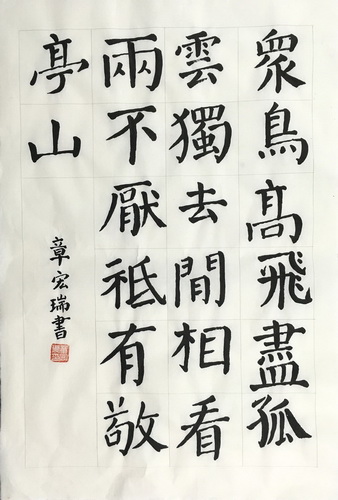 眾鳥高飛盡孤
雲獨去閒相看
兩不厭祗有敬
亭山
章宏瑞書